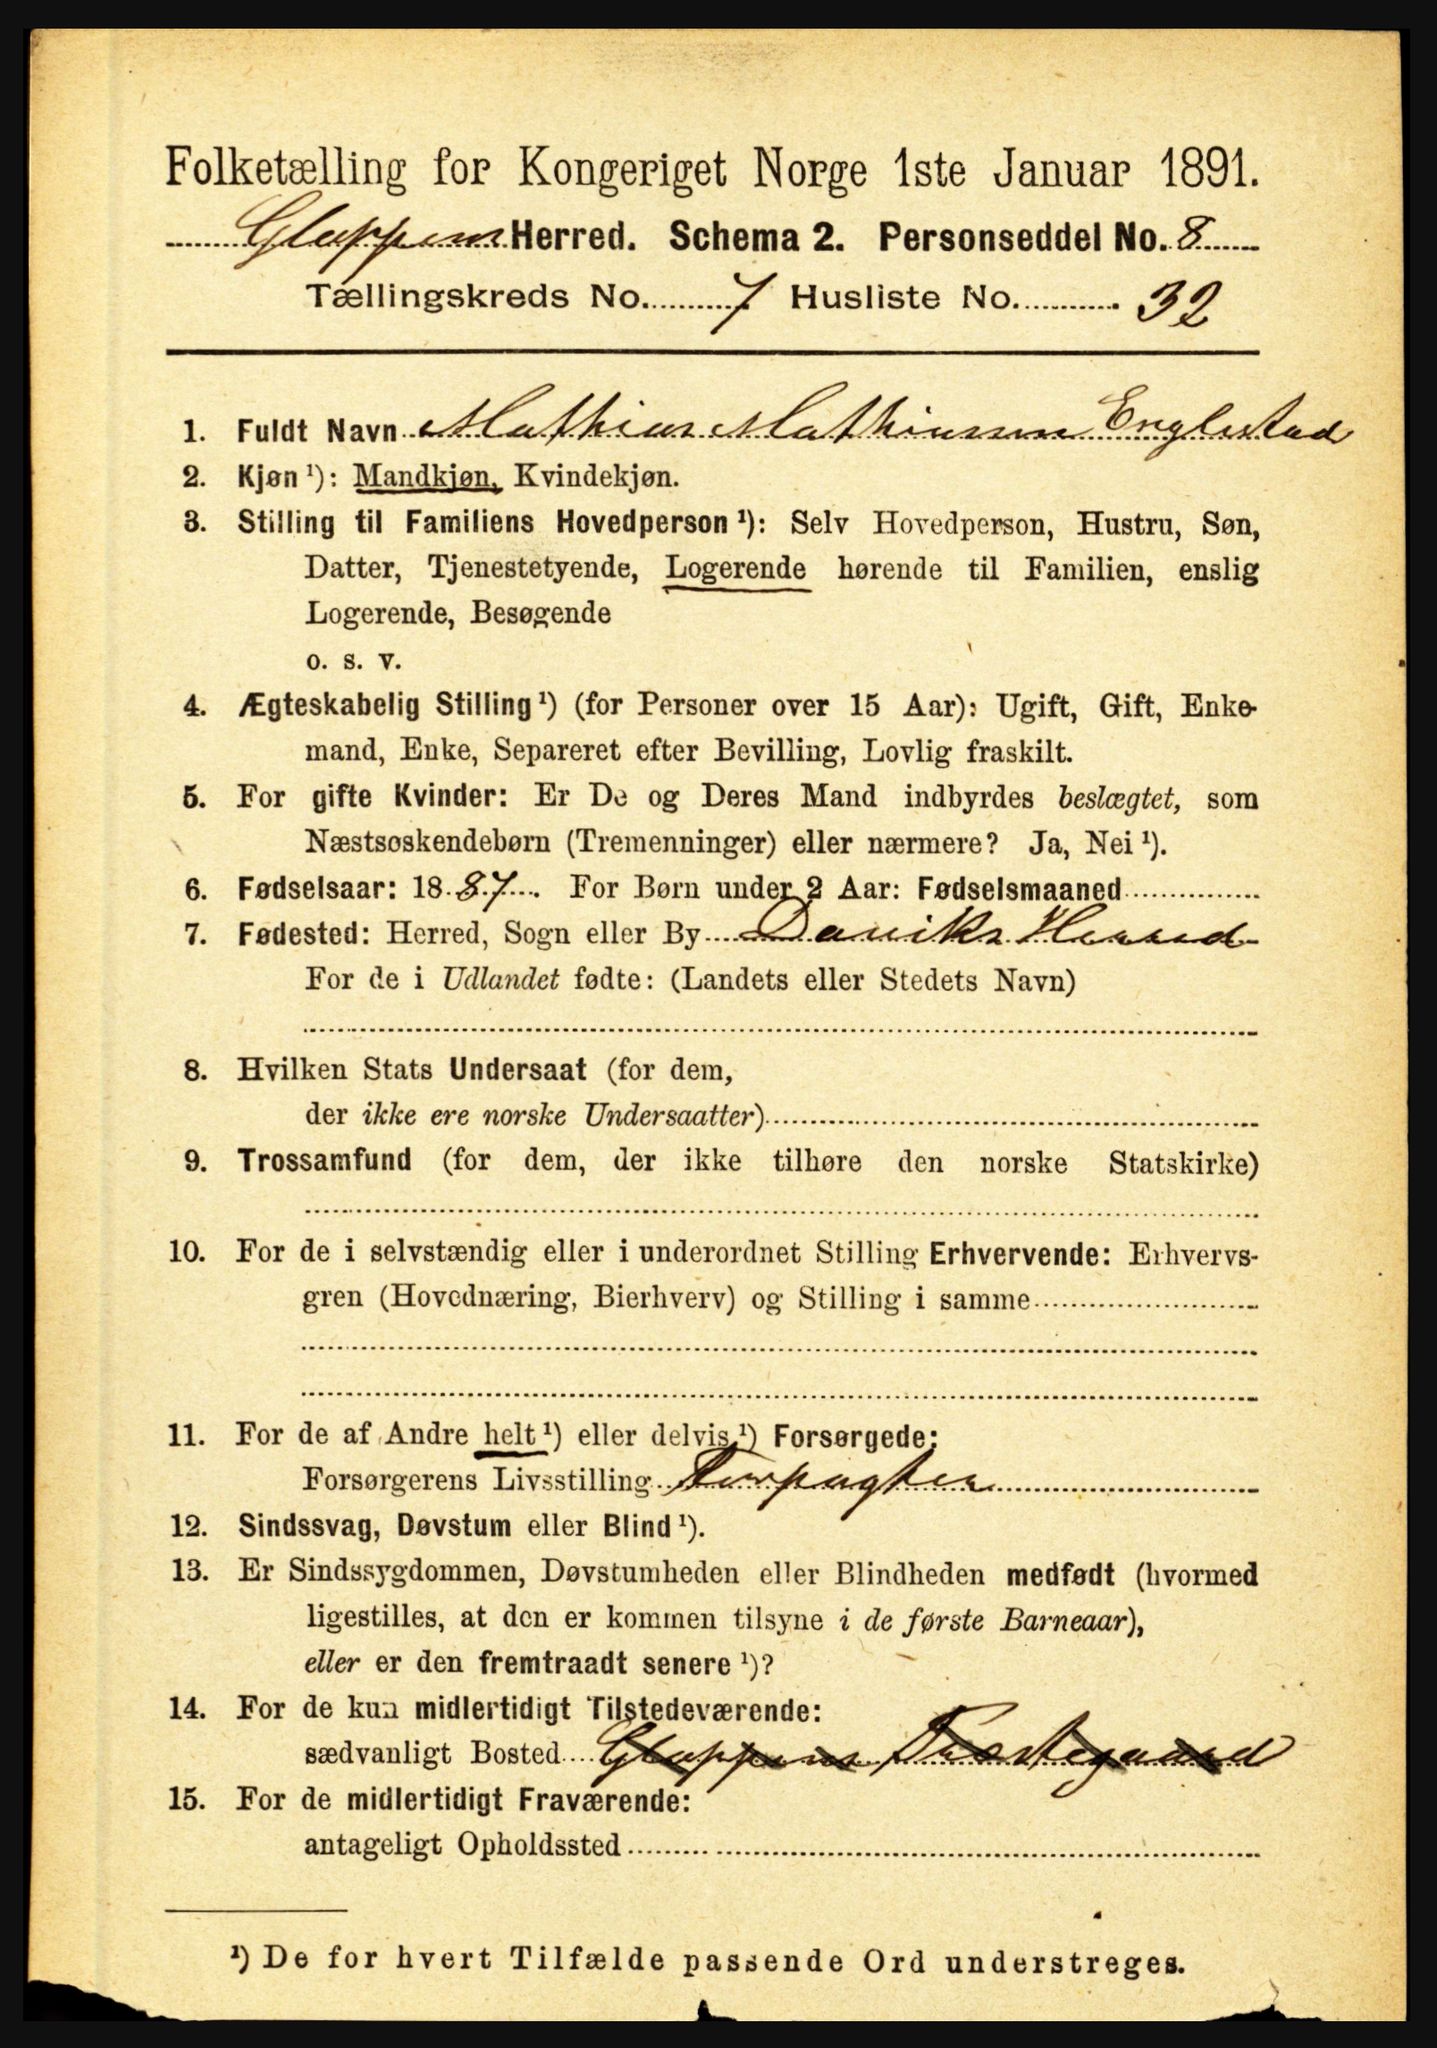 Folketælling for Kongeriget Norge 1ste Januar 1891.
Gloppem Herred. Schema 2. Personseddel No. 8
Tællingskreds No. 7 Husliste No. 32
1. Fuldt Navn Mathias Mathiassen Englestad
2. Kjøn ¹): Mandkjøn, Kvindekjøn.
3. Stilling til Familiens Hovedperson ¹): Selv Hovedperson, Hustru, Søn,
Datter, Tjenestetyende, Logerende hørende til Familien, enslig
Logerende, Besøgende
o. s. v.
4. Ægteskabelig Stilling ¹) (for Personer over 15 Aar): Ugift, Gift, Enke-
mand, Enke, Separeret efter Bevilling, Lovlig fraskilt.
5. For gifte Kvinder: Er De og Deres Mand indbyrdes beslægtet, som
Næstsøskendebørn (Tremenninger) eller nærmere? Ja, Nei ¹).
6. Fødselsaar: 1887. For Børn under 2 Aar: Fødselsmaaned
7. Fødested: Herred, Sogn eller By Daviks Herred
For de i Udlandet fødte: (Landets eller Stedets Navn)
8. Hvilken Stats Undersaat (for dem,
der ikke ere norske Undersaatter)
9. Trossamfund (for dem, der ikke tilhøre den norske Statskirke)
10. For de i selvstændig eller i underordnet Stilling Erhvervende: Erhvervs-
gren (Hovednæring, Bierhverv) og Stilling i samme
11. For de af Andre helt ¹) eller delvis ¹) Forsørgede:
Forsørgerens Livsstilling Forpagter
12. Sindssvag, Døvstum eller Blind ¹).
13. Er Sindssygdommen, Døvstumheden eller Blindheden medfødt (hvormed
ligestilles, at den er kommen tilsyne i de første Barneaar),
eller er den fremtraadt senere ¹)?
14. For de kun midlertidigt Tilstedeværende:
sædvanligt Bosted Gloppens Præstegaard
15. For de midlertidigt Fraværende:
antageligt Opholdssted
¹) De for hvert Tilfælde passende Ord understreges.